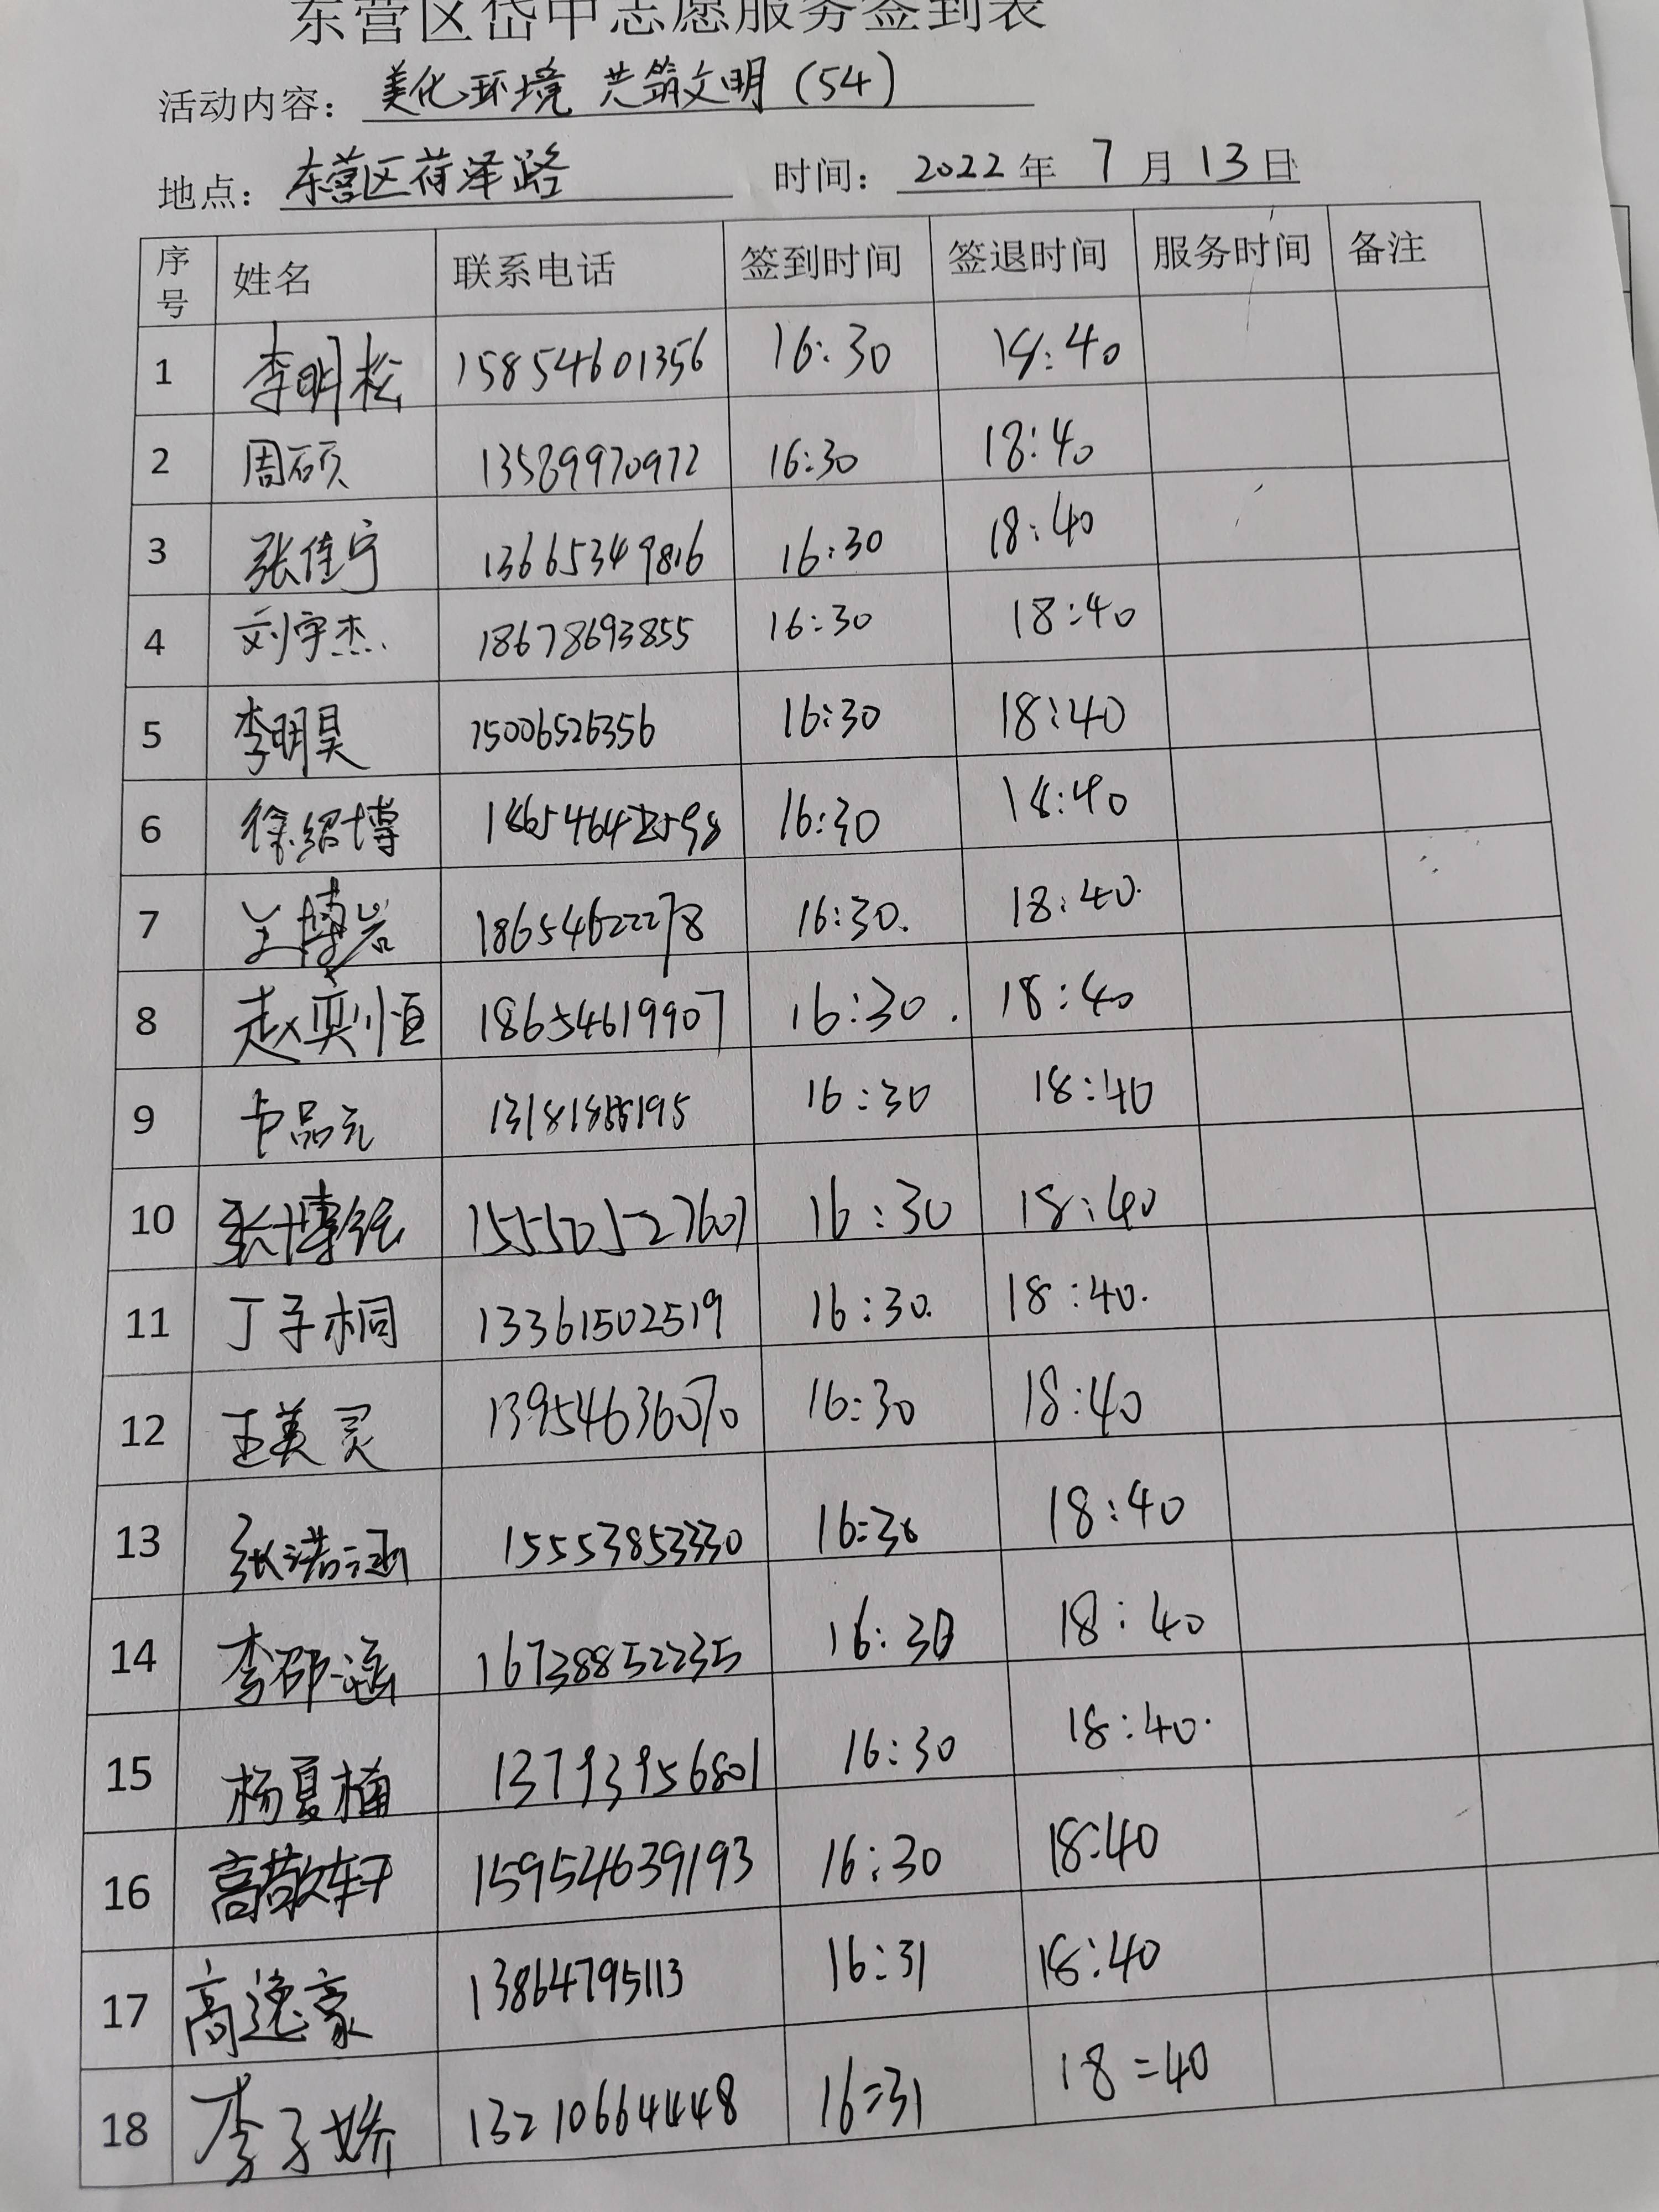 东营区岱中志愿服务签到表
活动内容：美化环境 共筑文明（54）
地点：东营区荷泽路 时间：2022年7月13日
序号 姓名 联系电话 签到时间 签退时间 服务时间 备注
1 李明松 15854601356 16:30 18:40
2 周硕 13589970972 16:30 18:40
3 张佳宁 13665349816 16:30 18:40
4 刘宇杰 18678693855 16:30 18:40
5 李明昊 15006526356 16:30 18:40
6 徐绍博 16:30 18:40
7 王博岩 18654622278 16:30. 18:40.
8 赵奕恒 18654619907 16:30. 18:40
9 卢品元 16:30 18:40
10 张博 15550527607 16:30 18:40
11 丁子桐 13361502519 16:30. 18:40.
12 王美灵 13954636070 16:30 18:40
13 张诺涵 15553853330 16:30 18:40
14 李邵涵 16738852235 16:30 18:40
15 杨夏楠 13793956801 16:30 18:40.
16 高敬轩 159524639193 16:30 18:40
17 高逸豪 13864795113 16:31 18:40
18 李子娇 13210664448 16=31 18=40